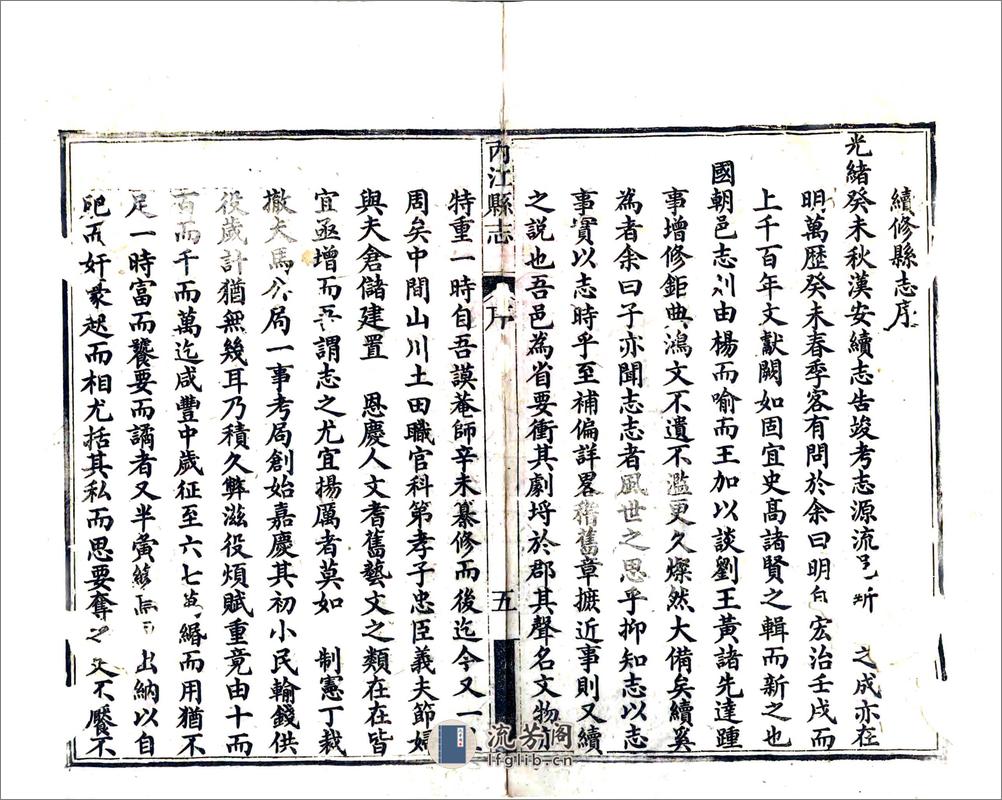 續修縣志序
光緒癸未秋漢安續志告竣考志源流 之成亦在
明萬歷癸未春季客有問於余曰明自宏治壬戌而
上千百年文獻闕如固宜史高諸賢之輯而新之也
國朝邑志川由楊而喻而王加以談劉王黃諸先達踵
事增修鉅典鴻文不遺不濫更久燦然大備矣續奚
為者余曰子亦聞志志者風世之思乎抑知志以志
事實以志時乎至補偏詳畧稽舊章摭近事則又續
之說也吾邑為省要衝其劇埒於郡其聲名文物
內江縣志
序
五
特重一時自吾謨菴師辛未纂修而後迄今又一
周矣中間山川土田職官科第孝子忠臣義夫節婦
與夫倉儲建置 恩慶人文耆舊藝文之類在在皆
宜亟增而吾謂志之尤宜揚厲者莫如 制憲丁裁
撤夫馬分局一事考局創始嘉慶其初小民輸錢供
役歲計猶無幾耳乃積久弊滋役煩賦重竟由十而
百而千而萬迄咸豐中歲征至六七萬緡而用猶不
足一時富而饕要而譎者又半 出納以自
肥而奸豪起而相尤括其私而思要奪之 不饜不
流芳阁
lfglib.cn